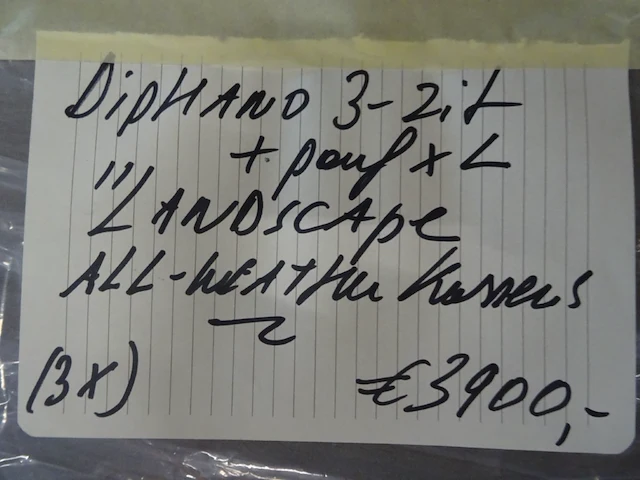 DipHANO 3-Zit
+ pouf XL
"LANDSCApe
ALL-WEATHer Kussens
(3x) €3900,-